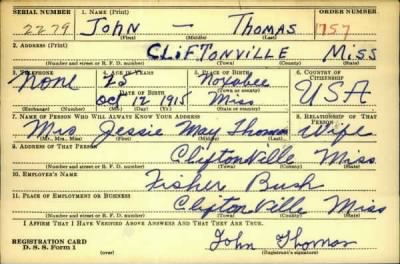 SERIAL NUMBER 1. NAME (Print) ORDER NUMBER
2279 John — Thomas 757
(First) (Middle) (Last)
2. ADDRESS (Print)
CLiFTONVILLE Miss
(Number and street or R. F. D. number) (Town) (County) (State)
3. TELEPHONE 4. AGE IN YEARS 5. PLACE OF BIRTH 6. COUNTRY OF CITIZENSHIP
None 25 Noxubee USA
DATE OF BIRTH (Town or county)
Oct 12 1915 Miss
(Exchange) (Number) (Mo.) (Day) (Yr.) (State or country)
7. NAME OF PERSON WHO WILL ALWAYS KNOW YOUR ADDRESS 8. RELATIONSHIP OF THAT PERSON
Mrs Jessie May Thomas Wife
(Mr., Mrs., Miss) (First) (Middle) (Last)
9. ADDRESS OF THAT PERSON
Cliftonville Miss.
(Number and street or R. F. D. number) (Town) (County) (State)
10. EMPLOYER'S NAME
Fisher Bush
11. PLACE OF EMPLOYMENT OR BUSINESS
Cliftonville Miss
(Number and street or R. F. D. number) (Town) (County) (State)
I AFFIRM THAT I HAVE VERIFIED ABOVE ANSWERS AND THAT THEY ARE TRUE.
John Thomas
REGISTRATION CARD
D. S. S. Form 1 (over) (Registrant's signature)